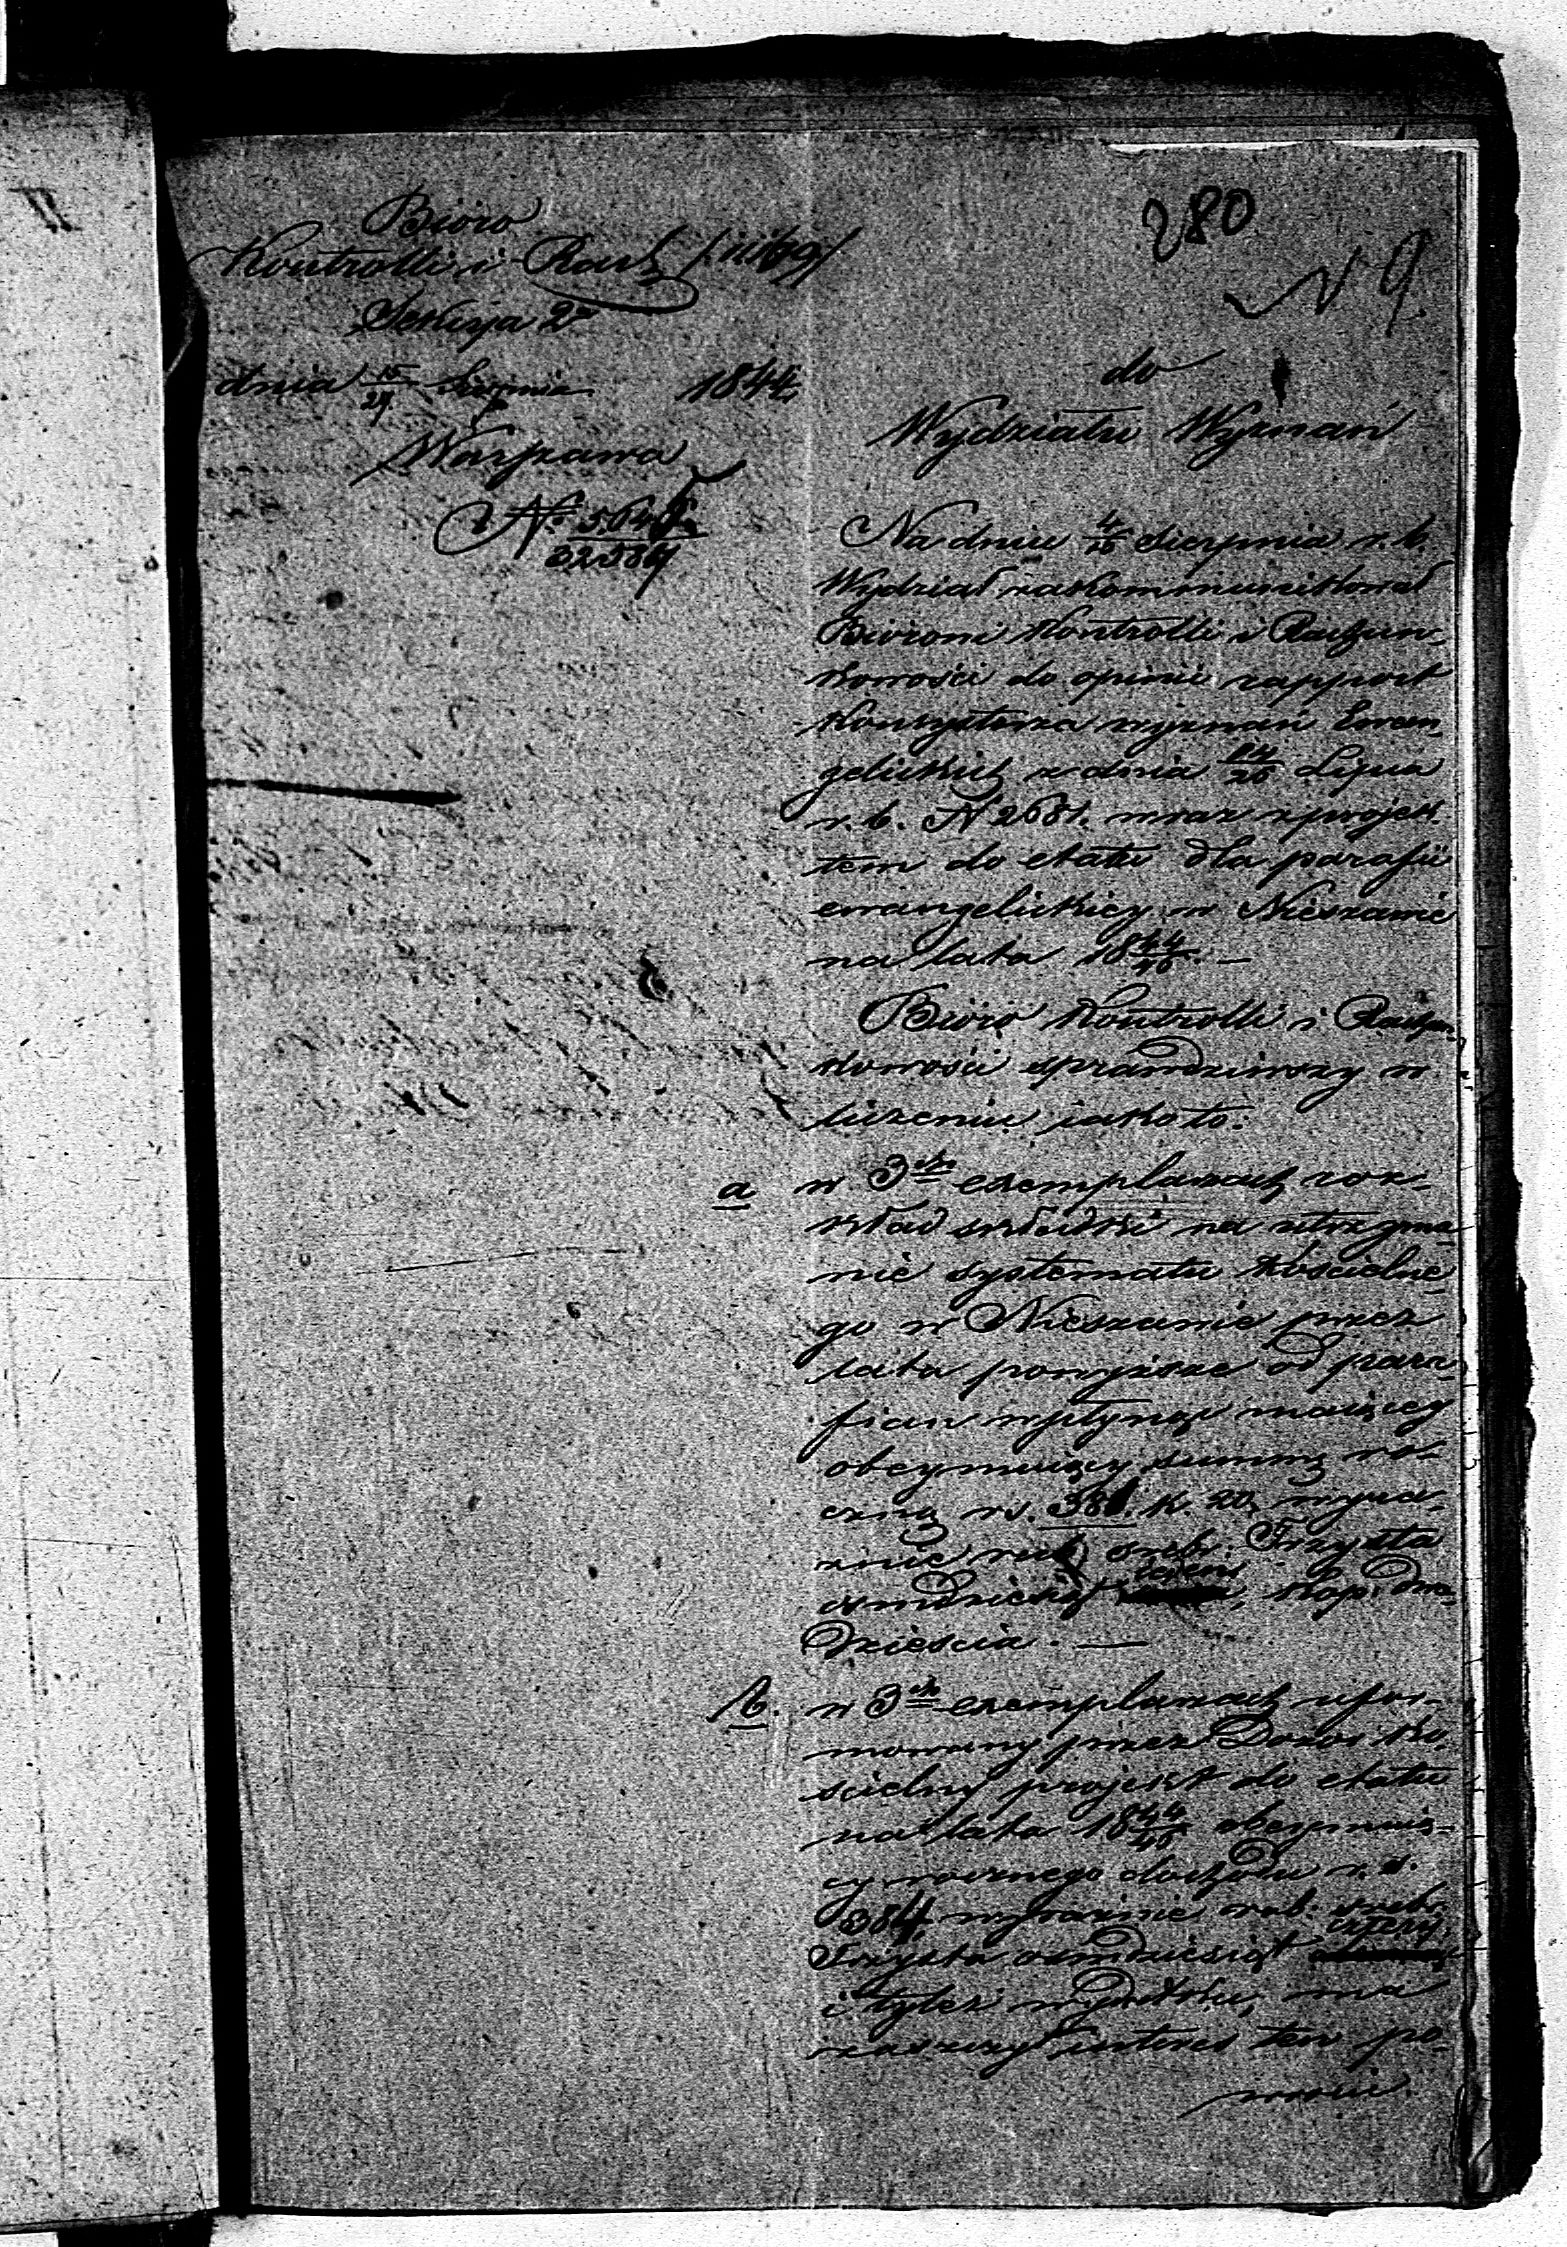 280
N 9.
Bióro
Kontrolli i Rach /:11169/
Sekcya 2ª
dnia 15/27 Sierpnia 1844
Warszawa
N° 5645/32586
do
Wydziału Wyznań
Na dniu 4/16 Sierpnia r. b.
Wydział zakommunikował
Biórowi Kontrolli i Rachun-
kowości do opinii rapport
Konsystorza wyznań Ewan-
gelickich z dnia 14/26 Lipca
r. b. N 2681. wraz z projek-
tem do etatu dla parafii
ewangelickiey w Nieszawie
na lata 1844/46. —
Bióro Kontrolli i Rachun-
kowości sprawdziwszy w
liczeniu jako to:
a w 3ch exemplarzach roz-
kład składki na utrzyma-
nie systematu Kościelne-
go w Nieszawie przez
lata powyższe od para-
fian wpłynąć maiącey
obeymuiący summę ro-
czną rs. 381. k. 20, wyra-
źnie rub. sreb. Trzysta
osmdziesiąt jeden, kop. dwa-
dzieścia. —
b. w 3ch exemplarzach ufor-
mowany przez Dozór Ko-
ścielny projekt do etatu
na lata 1844/46 obeymuią-
cy rocznego dochodu r. s.
384, wyraźnie rub. srebr.
Trzysta osmdziesiąt cztery
i tyleż wydatku, ma
zaszczyt interes ten po-